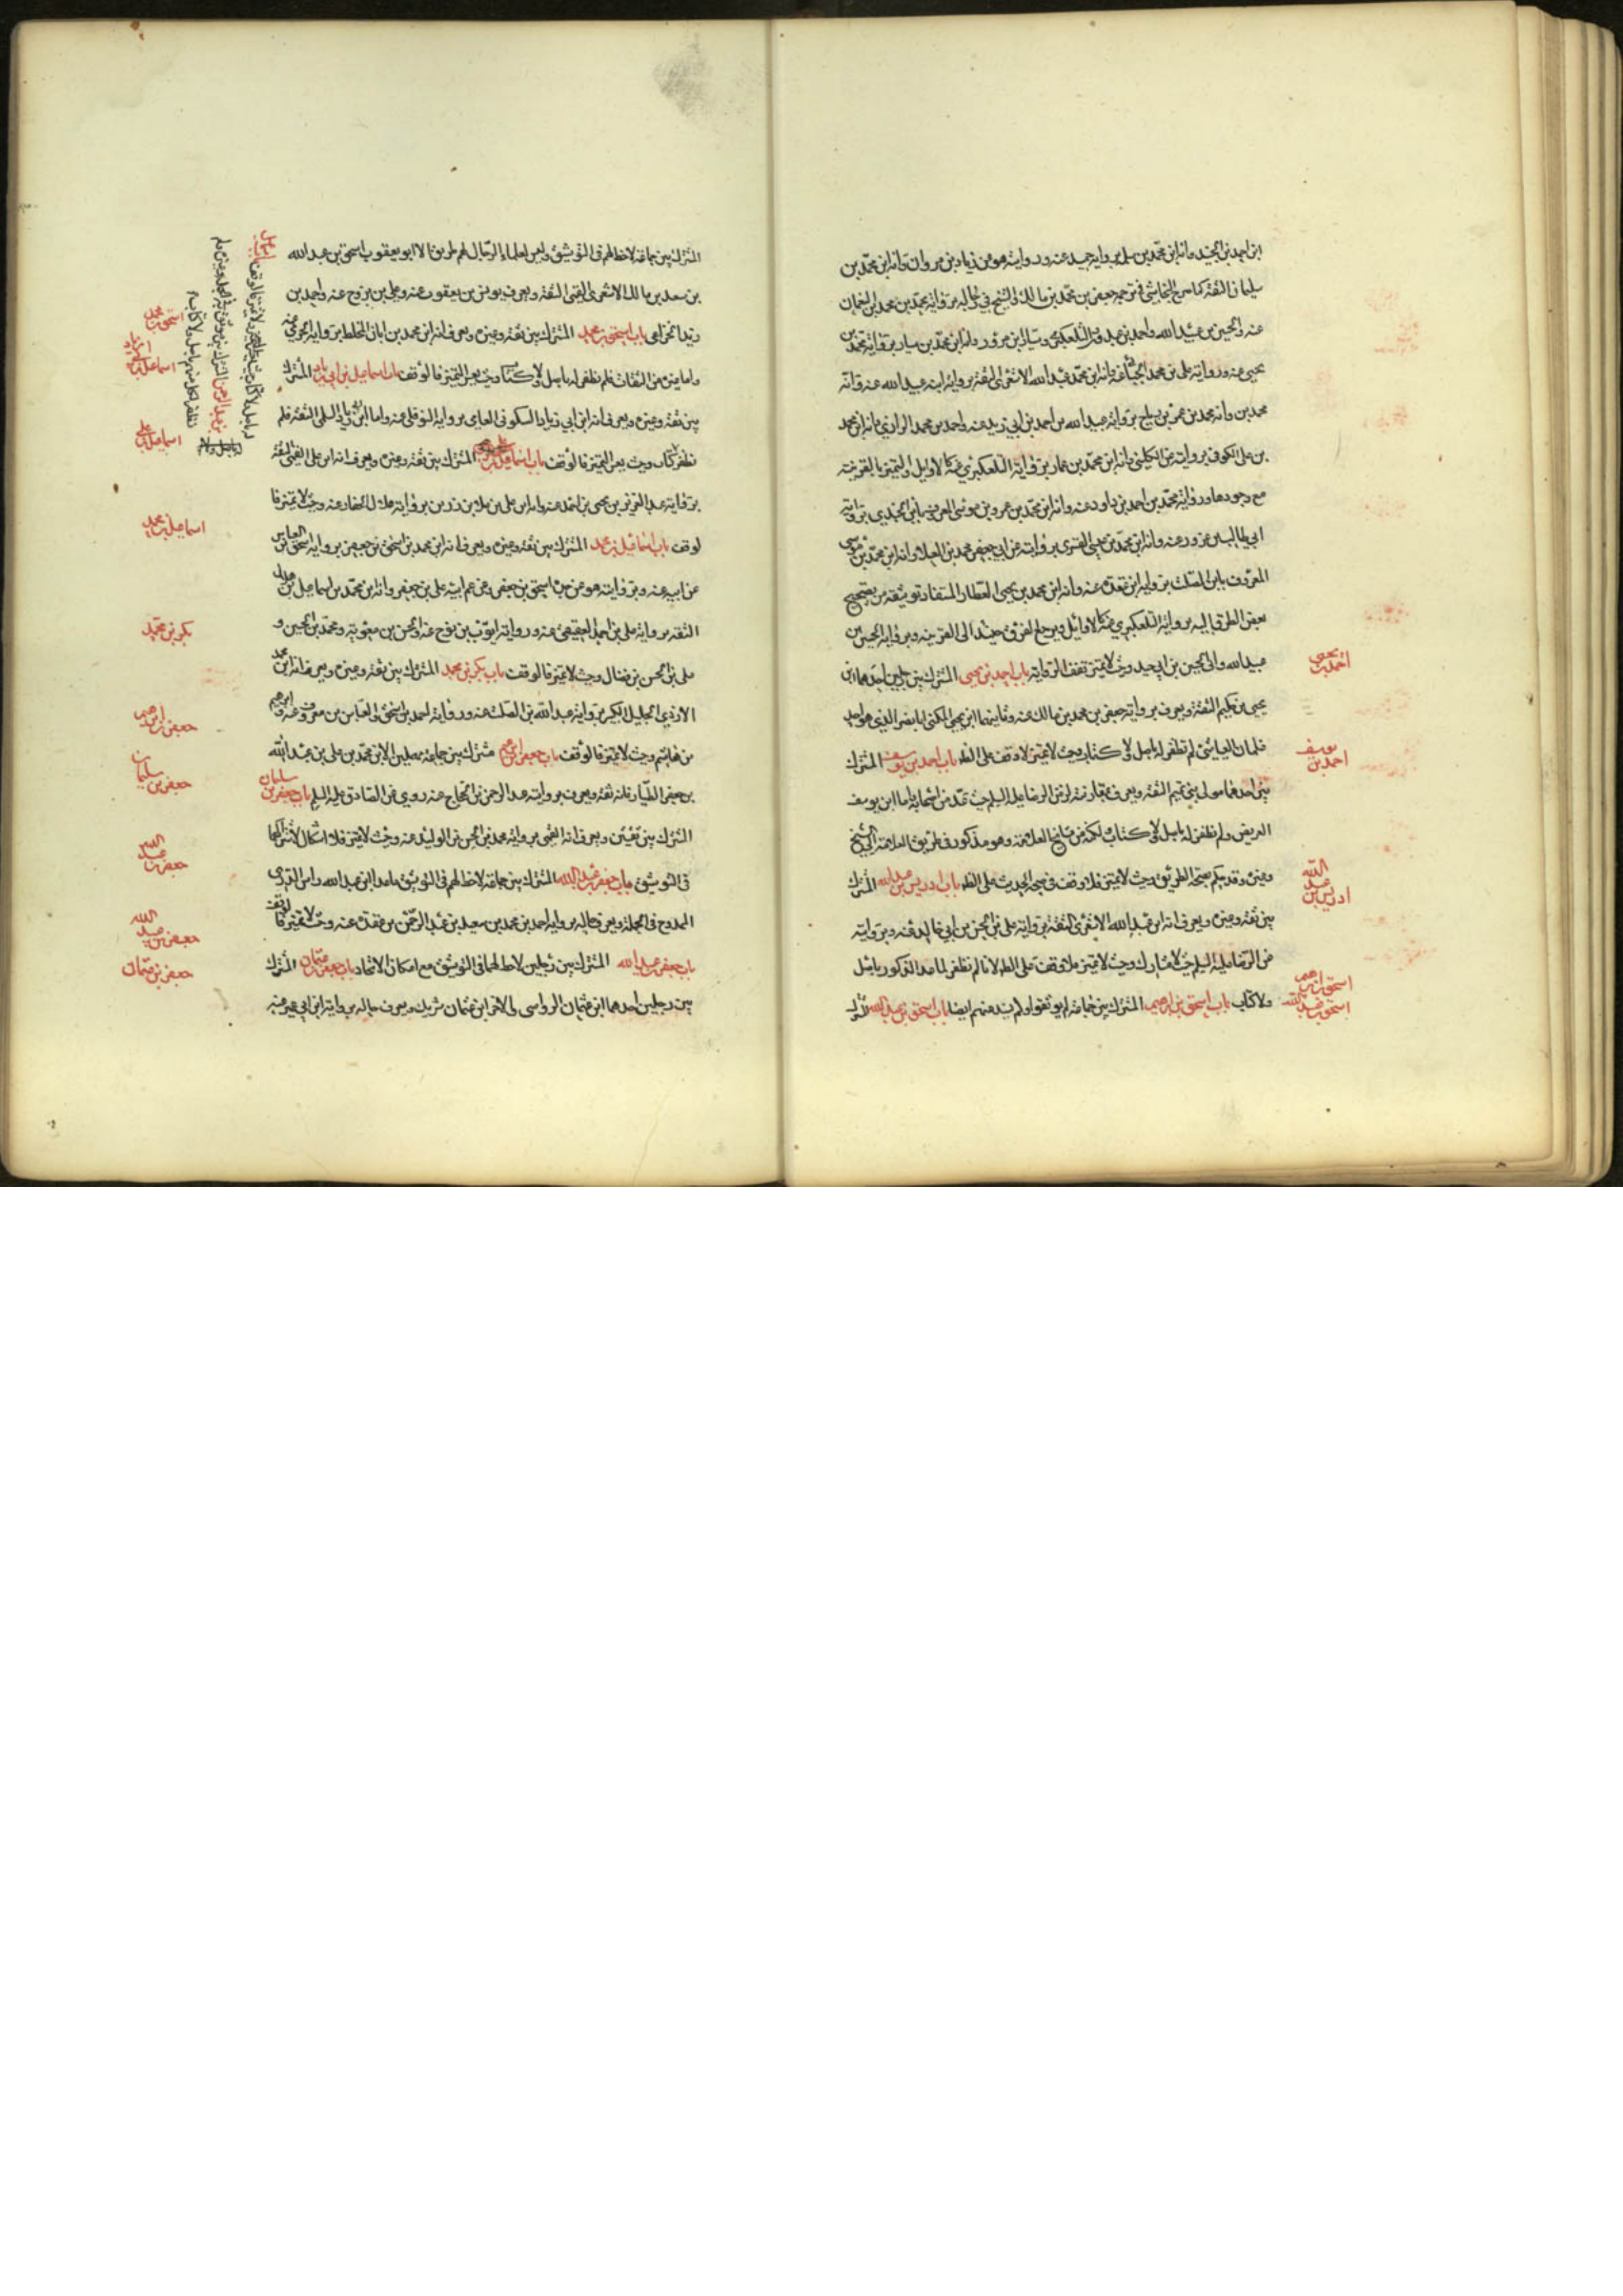 ابن احمد بن الجنيد وانه ابن محمد بن سلم برواية حميد عنه ورواية هو عن زياد بن مروان وانه ابن محمد بن
سليمان الثقة كما صرح النجاشي في ترجمة جعفر بن محمد بن مالك والشيخ في رجاله برواية محمد بن محمد بن النعمان
عنه والحسين بن عبيد الله واحمد بن عبدون والتلعكبري وانه ابن محمد بن سيار برواية محمد بن
يحيى عنه ورواية على بن محمد الجبائي عنه وانه ابن محمد بن عبد الله الاشعرى الثقة برواية ابنه عبيد الله عنه وانه
محمد بن وانه محمد بن عمر بن رياح برواية عبيد الله بن احمد بن ابي زيد عنه واحمد بن محمد الرازي وانه ابن محمد
بن على الكوفى بروايته عن الكليني وانه ابن محمد بن عمار برواية التلعكبري عنه كالاوايل والتميز بالقرينة
مع وجودها ورواية محمد بن احمد بن داود عنه وانه ابن محمد بن عمرو بن موسى المعروف بابن الجندي برواية
ابي طالب بن عزور عنه وانه ابن محمد بن عيسى القسرى بروايته عن ابي جعفر محمد بن العلاء وانه ابن محمد بن موسى
المعروف بابن الصلت برواية ابن عقدة عنه وانه ابن محمد بن يحيى العطار المستفاد توثيقه من تصحيح
بعض الطرق اليه برواية التلعكبري عنه كالاوائل ويرجع الفرق حينئذ الى القرينة وبرواية الحسين بن
عبيد الله وابى الحسين بن ابى جيد وحيث لا تميز تقف الرواية باب احمد بن يحيى المشترك بين رجلين احدهما ابن
يحيى بن حكيم الثقة ويعرف برواية جعفر بن محمد بن مالك عنه وثانيهما ابن يحيى المكنى ابا نصر الذي هو احد
غلمان العياشي لم نظفر له باصل ولا كتاب وحيث لا تميز لا وقف على الظ باب احمد بن يوسف المشترك
بين احدهما مولى بني تيم الثقة ويعرف بمقارنته لزمن الرضا عليه السلم حيث عد من اصحابه واما ابن يوسف
العريضي ولم نظفر له باصل ولا كتاب لكنه من مشايخ العلامة وهو مذكور في طريق العلامة الى الشيخ
وغيره وقد حكم بصحة الطريق وحيث لا تميز فلا وقف في صحة الحديث على الظ باب ادريس بن عبد الله المشترك
بين ثقة وغيره ويعرف انه ابن عبد الله الاشعرى الثقة برواية على بن الحسن بن ابي خالد عنه وبروايته
عن الرضا عليه السلم حيث لا مشارك وحيث لا تميز فلا وقف على الظ لانا لم نظفر لما عدا المذكور باصل
ولا كتاب باب اسحق بن ابرهيم المشترك بين جماعة لم يوثقوا ولم يمدحهم ايضا باب اسحق بن عبد الله المشترك
احمد بن يحيى
احمد بن يوسف
ادريس بن عبد الله
اسحق بن ابرهيم
اسحق بن عبد الله
المشترك بين جماعة لاحظ لهم في التوثيق وليس لعلماء الرجال لهم طريق الا ابو يعقوب اسحق بن عبد الله
بن سعد بن مالك الاشعرى القمى الثقة ويعرف بيونس بن يعقوب عنه وعلى بن بزرج عنه واحمد بن
زيد الخزاعى باب اسحق بن محمد المشترك بين ثقة وغيره ويعرف انه ابن محمد بن ابان المخلط برواية الجرمي عنه
واما غيره من الثقات فلم نظفر له باصل ولا كتاب وحيث يعسر التميز فالوقف باب اسماعيل بن ابي زياد المشترك
بين ثقة وغيره ويعرف انه ابن ابي زياد السكونى العامى برواية النوفلى عنه واما ابن زياد السلمى الثقة فلم
نظفر له بكتاب وحيث يعسر التميز فالوقف باب اسماعيل بن على المشترك بين ثقة وغيره ويعرف انه ابن على القمى الثقة
برواية عبد العزيز بن يحيى بن احمد عنه وانه ابن على بن على بن رزين برواية هلال الحفار عنه وحيث لا تميز فا
لوقف باب اسماعيل بن محمد المشترك بين ثقة وغيره ويعرف انه ابن محمد بن اسحق بن جعفر برواية اسحق بن العباس
عن ابيه عنه وبروايته هو عن جده اسحق بن جعفر وعن عم ابيه على بن جعفر وانه ابن محمد بن اسماعيل بن هلال
الثقة برواية على بن احمد العقيقي عنه ورواية ايوب بن نوح عنه والحسن بن معوية ومحمد بن الحسين و
على بن الحسن بن فضال وحيث لا تميز فالوقف باب بكر بن محمد المشترك بين ثقة وغيره ويعرف انه ابن محمد
الازدي الجليل الكبير برواية عبد الله بن الصلت عنه ورواية احمد بن اسحق والعباس بن معروف عنه وابرهيم
بن هاشم وحيث لا تميز فالوقف باب جعفر بن ابرهيم مشترك بين جماعة مهملين الا ابن محمد بن على بن عبد الله
بن جعفر الطيار فانه ثقة ويعرف برواية عبد الرحمن بن الحجاج عنه روى عن الصادق عليه السلم باب جعفر بن سليمان
المشترك بين ثقتين ويعرف انه القمى برواية محمد بن الحسن بن الوليد عنه وحيث لا تميز فلا اشكال لاشتراكهما
في التوثيق باب جعفر بن عبد الله المشترك بين جماعة لاحظ لهم في التوثيق ما عدا ابن عبد الله راس المذرى
الممدوح في الجملة ويعرف حاله برواية احمد بن محمد بن سعيد بن عبد الرحمن بن عقدة عنه وحيث لا تميز فالوقف
باب جعفر بن عبيد الله المشترك بين رجلين لاحظ لهما في التوثيق مع امكان الاتحاد باب جعفر بن عثمان المشترك
بين رجلين احدهما ابن عثمان الرواسى والاخر ابن عثمان بن شريك ويعرف حاله برواية ابن ابي عمير عنه
اسحق بن محمد
اسماعيل بن ابي زياد
اسماعيل بن على
اسماعيل بن محمد
بكر بن محمد
جعفر بن ابرهيم
جعفر بن سليمان
جعفر بن عبد الله
جعفر بن عبيد الله
جعفر بن عثمان